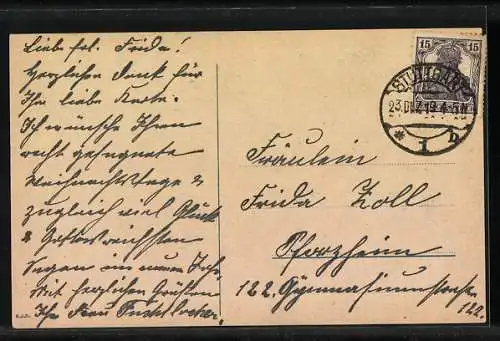 Liebe frl. Frida!
Herzlichen Dank für
Ihre liebe Karte.
Ich wünsche Ihnen
recht gesegnete
Weihnachtstage &
zugleich viel Glück
& Gottes reichsten
Segen im neuen Jahr.
Mit herzlichen Grüßen
Ihr Frau
15 15
STUTTGART
23.DEZ.19.4-5N
* 1 b
Fräulein
Frida Zoll
Pforzheim
122. Gymnasiumstraße
122.